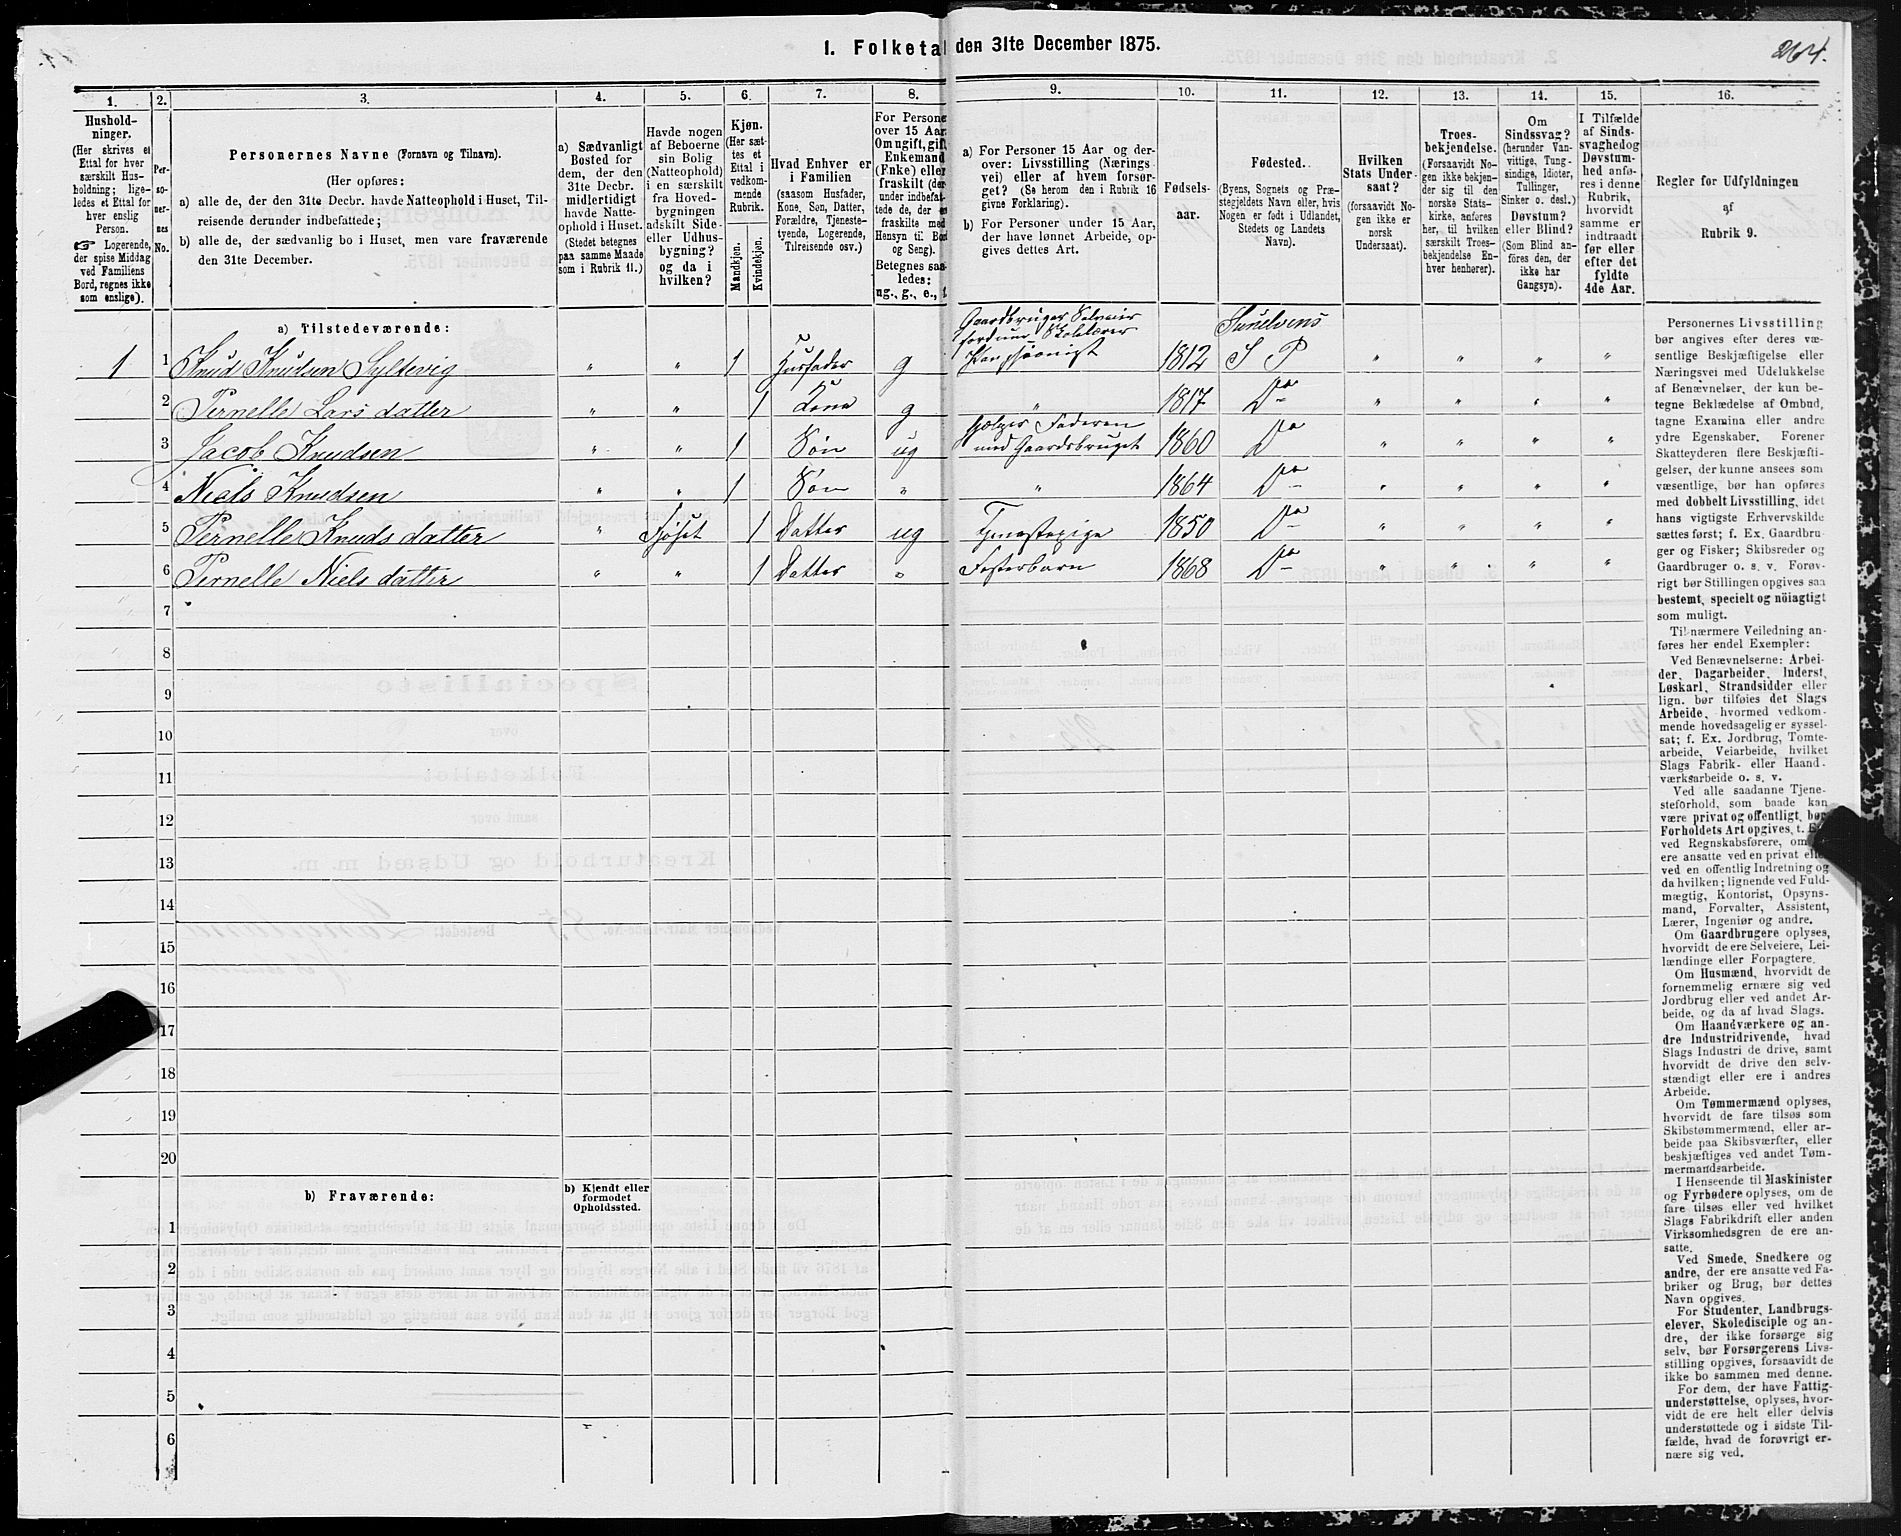 1. Folketal den 31te December 1875.
264.
1.
2.
3.
4.
5.
6.
7.
8.
9.
10.
11.
12.
13.
14.
15.
16.
Hushold-
ninger.
(Her skrives et
Ettal for hver
særskilt Hus-
holdning; lige-
ledes et Ettal for
hver enslig
Person.
☞ Logerende,
der spise Middag
ved Familiens
Bord, regnes ikke
som enslige).
Per-
so-
ner-
nes
No.
Personernes Navne (Fornavn og Tilnavn).
(Her opføres:
a) alle de, der den 31te Decbr. havde Natteophold i Huset, Til-
reisende derunder indbefattede;
b) alle de, der sædvanlig bo i Huset, men vare fraværende
den 31te December.
a) Sædvanligt
Bosted for
dem, der den
31te Decbr.
midlertidigt
havde Natte-
ophold i Huset.
(Stedet betegnes
paa samme Maade
som i Rubrik 11.)
Havde nogen
af Beboerne
sin Bolig
(Natteophold)
i en særskilt
fra Hoved-
bygningen
adskilt Side-
eller Udhus-
bygning?
og da i
hvilken?
Kjøn.
(Her sæt-
tes et
Ettal i
vedkom-
mende
Rubrik.
Mandkjøn.
Kvindekjøn.
Hvad Enhver er
i Familien
(saasom Husfader,
Kone, Søn, Datter,
Forældre, Tjeneste-
tyende, Logerende,
Tilreisende osv.)
For Persone
over 15 Aar
Om ugift, gift
Enkemand
(Enke) eller
fraskilt (der-
under indbefat-
tede de, der
fraskilte med
Hensyn til Bord
og Seng).
Betegnes saa-
ledes:
ug., g., e., f.
a) For Personer 15 Aar og der-
over: Livsstilling (Nærings-
vei) eller af hvem forsør-
get? (Se herom den i Rubrik 16
givne Forklaring).
b) For Personer under 15 Aar,
der have lønnet Arbeide, op-
gives dettes Art.
Fødsels-
aar.
Fødested.
(Byens, Sognets og Præ-
stegjeldets Navn eller, hvis
Nogen er født i Udlandet,
Stedets og Landets
Navn).
Hvilken
Stats Under-
saat?
(forsaavidt No-
gen ikke er
norsk
Undersaat).
Troes-
bekjendelse.
(Forsaavidt No-
gen ikke bekjen-
der sig til den
norske Stats-
kirke, anføres
her, til hvilken
særskilt Troes-
bekjendelse En-
hver henhører).
Om
Sindssvag?
(herunder Van-
vittige, Tung-
sindige, Idioter,
Tullinger,
Sinker o. desl.)
Døvstum?
eller Blind?
(Som Blind an-
føres den, der
ikke har
Gangsyn).
I Tilfælde
af Sinds-
svaghed og
Døvstum-
hed anfø-
res i denne
Rubrik,
hvorvidt
samme er
indtraadt
før eller
efter det
fyldte
4de Aar.
Regler før Udfyldningen
af
Rubrik 9.
a) Tilstedeværende:
Gaardbruger Selveier
fordum Skolelærer
Sunelvens
1 1 Knud Knudsen Syltevig " " 1 Husfader g Pansionist 1812 S P " " " "
2 Pernelle Lars datter " " 1 Kone g " 1817 Do " " " "
hjælper Faderen
3 Jacob Knudsen " " 1 Søn ug med Gaardsbruget 1860 Do " " " "
4 Niels Knudsen " " 1 Søn " " 1864 Do " " " "
5 Pernelle Knuds datter " Fjøset 1 Datter ug Tjenestepige 1850 Do " " " "
6 Pernelle Niels datter " " 1 Datter " Fosterbarn 1868 Do " " " "
7
8
9
10
11
12
13
14
15
16
17
18
19
20
b) Fraværende:
b) Kjendt eller
formodet
Opholdssted.
1
2
3
4
5
6
Personernes Livsstilling
bør angives efter deres væ-
sentlige Beskjæftigelse eller
Næringsvei med Udelukkelse
af Benævnelser, der kun be-
tegne Beklædelse af Ombud,
tagne Examina eller andre
ydre Egenskaber. Forener
Skatteyderen flere Beskjæfti-
gelser, der kunne ansees som
væsentlige, bør han opføres
med dobbelt Livsstilling, idet
hans vigtigste Erhvervskilde
sættes først; f. Ex. Gaardbru-
ger og Fisker; Skibsreder og
Gaardbruger o. s. v. Forøv-
rigt bør Stillingen opgives saa
bestemt, specielt og nöiagtigt
som muligt.
Til nærmere Veiledning an-
føres her endel Exempler:
Ved Benævnelserne: Arbei-
der, Dagarbeider, Inderst,
Løskarl, Strandsidder eller
lign. bør tilføies det Slags
Arbeide, hvormed vedkom-
mende hovedsagelig er syssel-
sat; f. Ex. Jordbrug, Tomte-
arbeide, Veiarbeide, hvilket
Slags Fabrik- eller Haand-
værksarbeide o. s. v.
Ved alle saadanne Tjene-
steforhold, som baade kan
være privat og offentligt, bør
Forholdets Art opgives, t. Ex.
ved Regnskabsførere, om
ere ansatte ved en privat eller
ved en offentlig Indretning og
da hvilken; lignende ved Fuld-
mægtig, Kontorist, Opsyns-
mand, Forvalter, Assistent,
Lærer, Ingeniør og andre.
Om Gaardbrugere oplyses,
hvorvidt de ere Selveiere, Lei-
lændinge eller Forpagtere.
Om Husmænd, hvorvidt de
fornemmelig ernære sig ved
Jordbrug eller ved andet Ar-
beide, og da af hvad Slags.
Om Haandværkere og an-
dre Industridrivende, hvad
Slags Industri de drive, samt
hvorvidt de drive den selv-
stændigt eller ere i andres
Arbeide.
Om Tømmermænd oplyses,
hvorvidt de fare tilsøs som
Skibstømmermænd, eller ar-
beide paa Skibsværfter, eller
beskjæftiges ved andet Tøm-
mermandsarbeide.
I Henseende til Maskinister
og Fyrbødere oplyses, om de
fare tilsøs eller ved hvilket
Slags Fabrikdrift eller anden
Virksomhedsgren de ere an-
satte.
Ved Smede, Snedkere og
andre, der ere ansatte ved Fa-
briker og Brug, bør dettes
Navn opgives.
For Studenter, Landbrugs-
elever, Skoledisciple og an-
dre, der ikke forsørge sig
selv, bør Forsørgerens Livs-
stilling opgives, forsaavidt de
ikke bo sammen med denne.
For dem, der have Fattig-
understøttelse, oplyses, hvor-
vidt de ere helt eller delvis
understøttede og i sidste Til-
fælde, hvad de forøvrigt er-
nære sig ved.